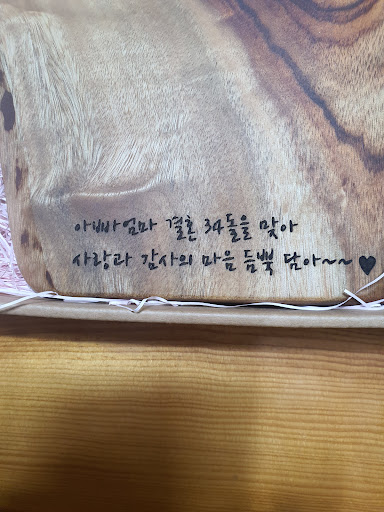 아빠엄마 결혼 34돌을 맞아
사랑과 감사의 마음 듬뿍 담아~~♥